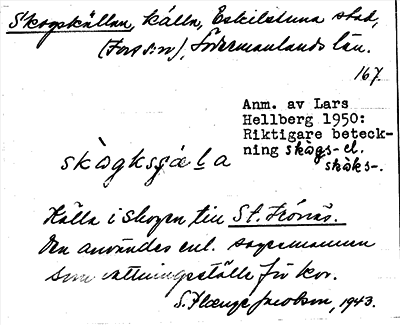 Skogskällan, källa, Eskilstuna stad,
(Fors sn), Södermanlands län.
167.
Anm. av Lars
Hellberg 1950:
Riktigare beteck-
ning skògs- el.
skòks-.
skògksgæla
Källa i skogen till St. Trönäs.
Den användes enl. sagesmannen
som vattningsställe för kor.
S. Jacobson, 1943.